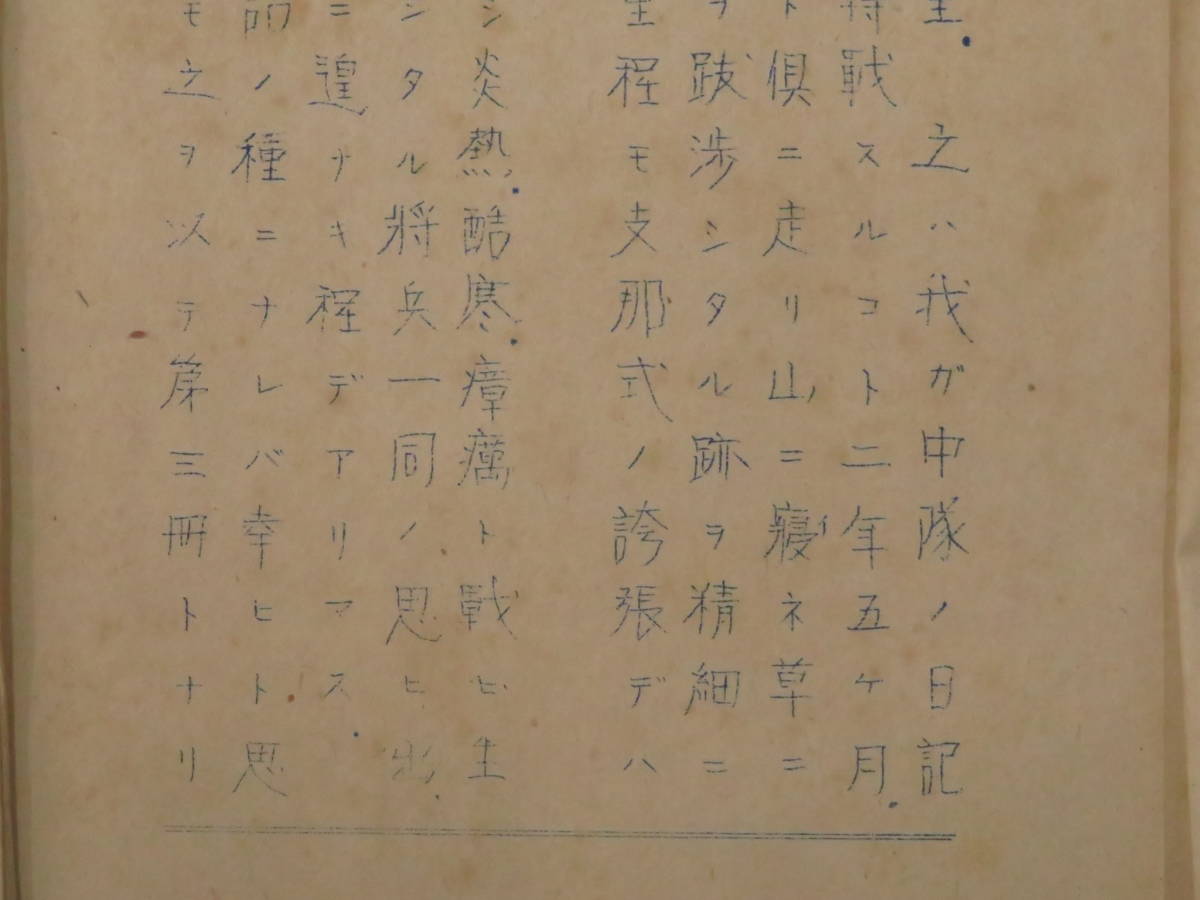 之ハ我ガ中隊ノ日記
戦スルコト二年五ケ月
ト倶ニ走リ山ニ寝ネ草ニ
ヲ跋渉シタル跡ヲ精細ニ
里程モ支那式ノ誇張デハ
シ炎熱酷寒瘴癘ト戦ヒ生
シタル将兵一同ノ思ヒ出
ニ遑ナキ程デアリマス
ノ種ニナレバ幸ヒト思
モ之ヲ以テ第三冊トナリ